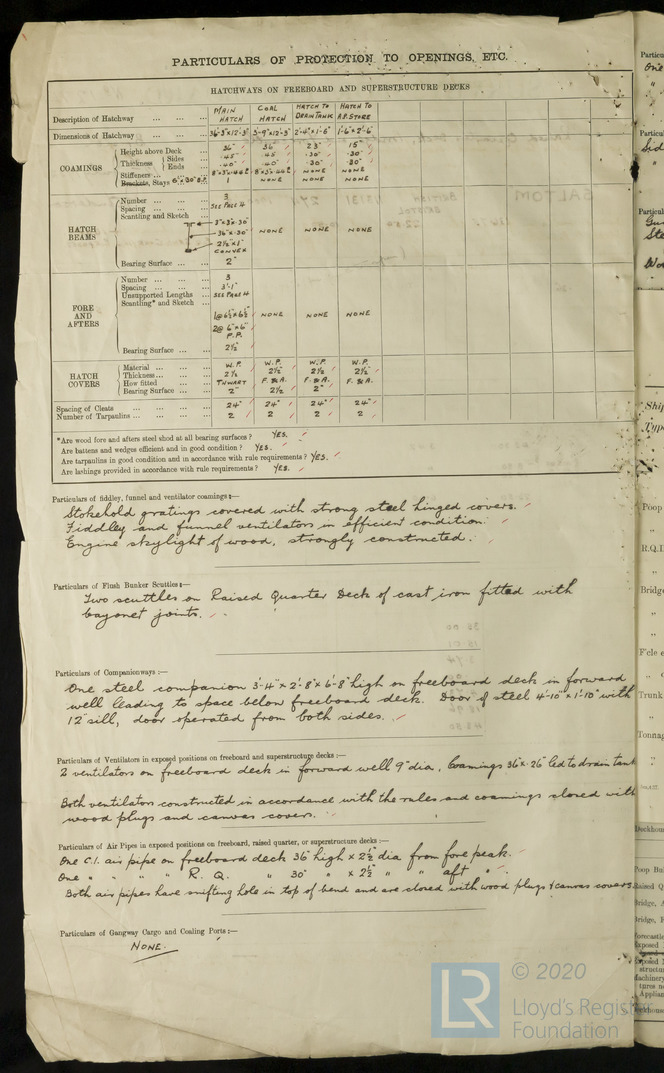 PARTICULARS OF PROTECTION TO OPENINGS, ETC.
HATCHWAYS ON FREEBOARD AND SUPERSTRUCTURE DECKS
Description of Hatchway ... ... ... MAIN HATCH COAL HATCH HATCH TO DRAIN TANK HATCH TO A.P. STORE
Dimensions of Hatchway ... ... ... 36'-3"×12'-3" 3'-9"×12'-3" 2'-4"×1'-6" 1'-6"×2'-6"
COAMINGS
Height above Deck ... 36" 36" 23" 15"
Thickness Sides ... .45" .45 .30" .30"
Ends ... .40" .40" .30" .30"
Stiffeners ... NONE NONE
Brackets, Stays 1 NONE NONE NONE
HATCH BEAMS
Number ... ... ... 3
Spacing ... ... ... SEE PAGE 4
Scantling and Sketch ...
3"×3"×.30"
36"×.30" NONE NONE NONE
2½×1"
CONVEX
Bearing Surface ... ... 2"
FORE AND AFTERS
Number ... ... ... 3
Spacing ... ... ... 3'-1"
Unsupported Lengths ... SEE PAGE 4
Scantling* and Sketch ...
1@6½×6½ NONE NONE NONE
2@ 6"×6"
P.P.
Bearing Surface ... ... 2½"
HATCH COVERS
Material ... ... ... W.P. W.P. W.P. W.P.
Thickness ... ... ... 2½ 2½ 2½ 2½
How fitted ... ... THWART F. & A. F. & A. F. & A.
Bearing Surface ... ... 2" 2½ 2"
Spacing of Cleats ... ... ... ... 24" 24" 24" 24"
Number of Tarpaulins ... ... ... ... 2 2 2 2
*Are wood fore and afters steel shod at all bearing surfaces? YES.
Are battens and wedges efficient and in good condition? YES.
Are tarpaulins in good condition and in accordance with rule requirements? YES.
Are lashings provided in accordance with rule requirements? YES.
Particulars of fiddley, funnel and ventilator coamings:—
Stokehold gratings covered with strong steel hinged covers.
Fiddley and funnel ventilators in efficient condition.
Engine skylight of wood, strongly constructed.
Particulars of Flush Bunker Scuttles:—
Two scuttles on Raised Quarter Deck of cast iron fitted with
bayonet joints.
Particulars of Companionways:—
One steel companion 3'-4"×2'-8"×6'-8" high on freeboard deck in forward
well leading to space below freeboard deck. Door of steel 4'-10"×1'-10" with
12" sill, door operated from both sides.
Particulars of Ventilators in exposed positions on freeboard and superstructure decks:—
2 ventilators on freeboard deck in forward well 9" dia, Coamings 36"×.26" led to drain tank
Both ventilators constructed in accordance with the rules and coamings closed with
wood plugs and canvas covers.
Particulars of Air Pipes in exposed positions on freeboard, raised quarter, or superstructure decks:—
One C.I. air pipe on freeboard deck 36" high × 2½" dia from fore peak.
One " " " " R. Q. " 30" " × 2½" " " aft "
Both air pipes have snifting hole in top of bend and are closed with wood plugs & canvas covers
Particulars of Gangway Cargo and Coaling Ports:—
NONE.
LR © 2020
Lloyd's Register
Foundation
Ship
Type
Poop
R.Q.D
Bridge
F'cle
Trunk
Tonnag